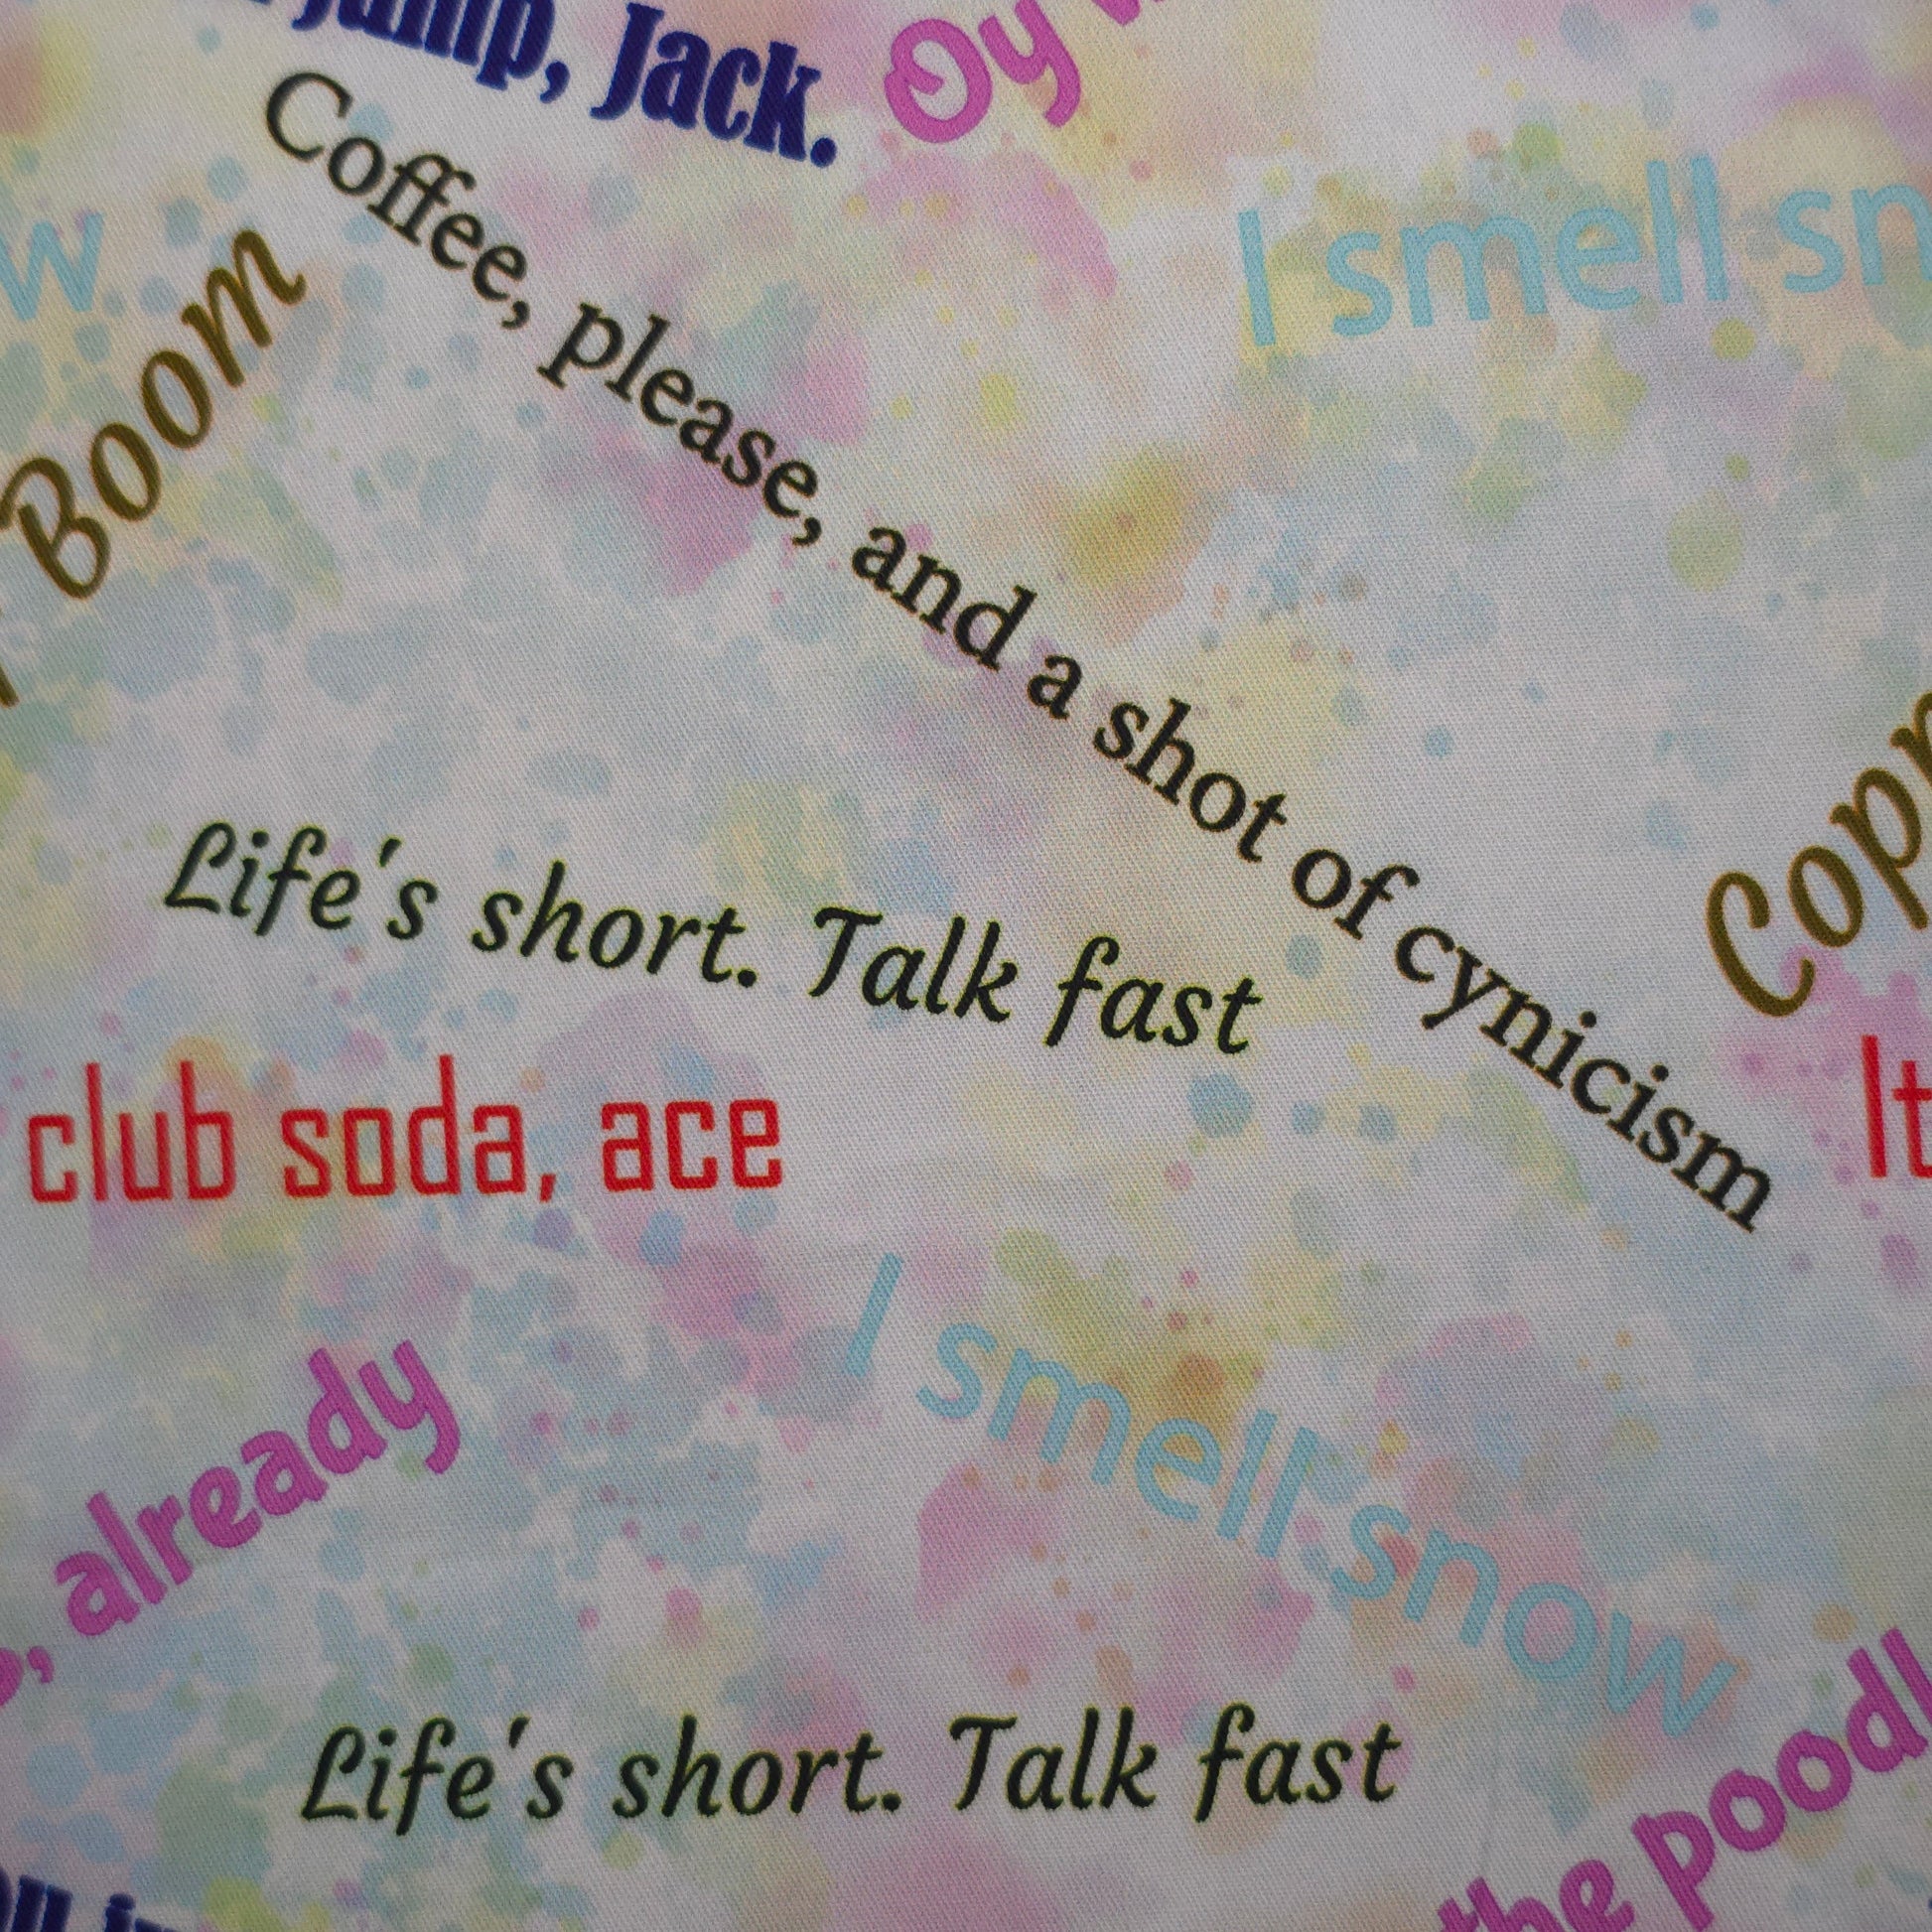 jump, Jack.
Oy
Coffee, please, and a shot of cynicism
I smell sn
w
Boom
Life's short. Talk fast
Cop
club soda, ace
It
I smell snow
, already
Life's short. Talk fast
the poodl